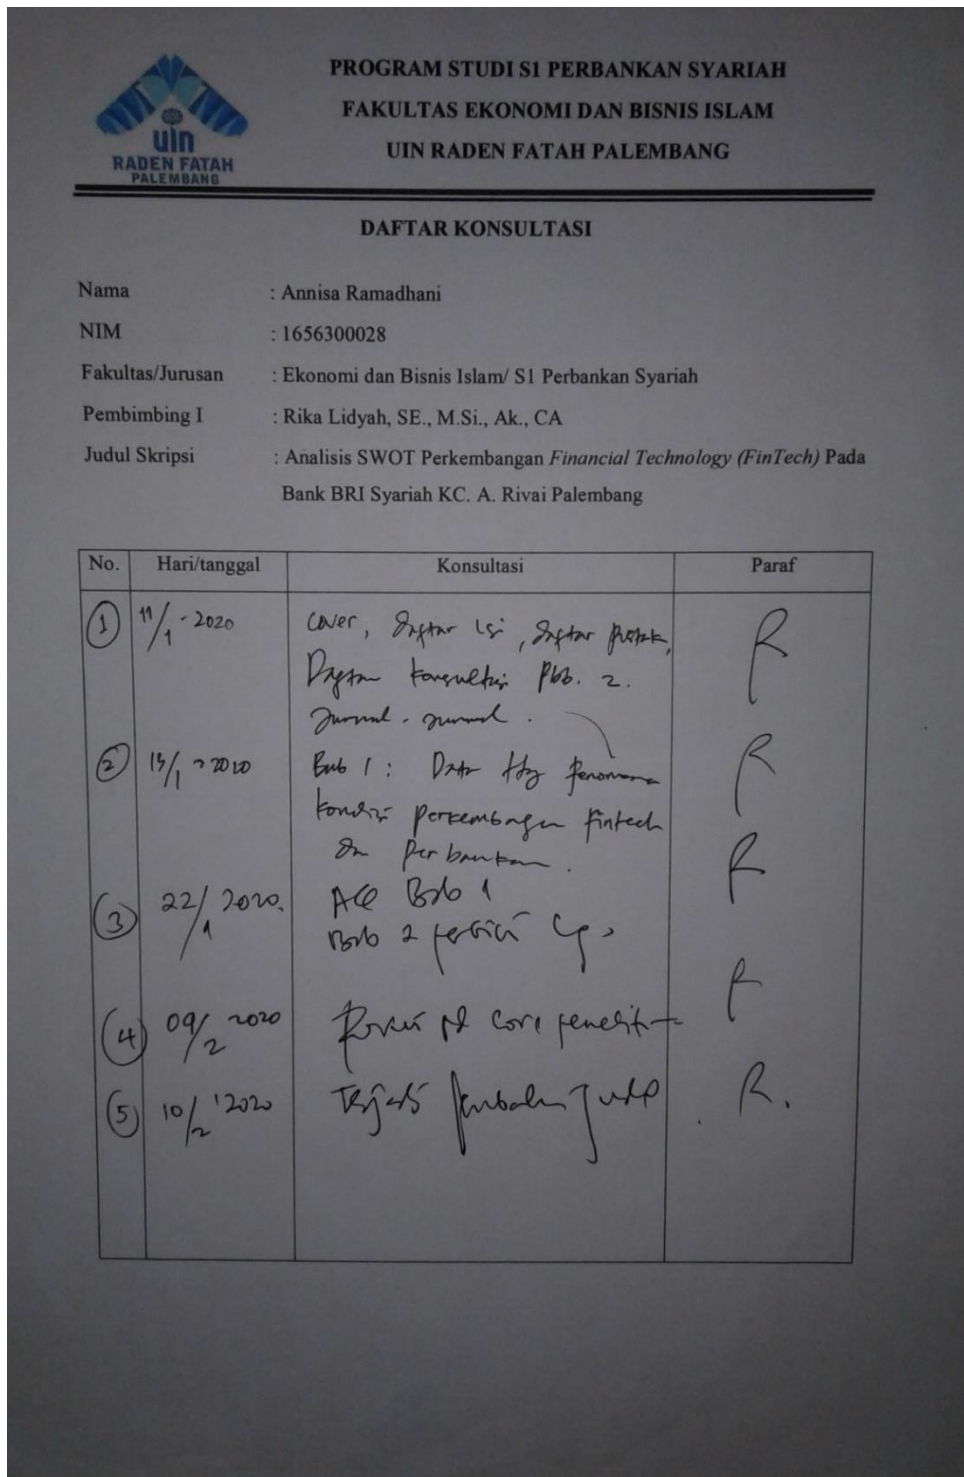 uin
RADEN FATAH
PALEMBANG
PROGRAM STUDI S1 PERBANKAN SYARIAH
FAKULTAS EKONOMI DAN BISNIS ISLAM
UIN RADEN FATAH PALEMBANG
DAFTAR KONSULTASI
Nama : Annisa Ramadhani
NIM : 1656300028
Fakultas/Jurusan : Ekonomi dan Bisnis Islam/ S1 Perbankan Syariah
Pembimbing I : Rika Lidyah, SE., M.Si., Ak., CA
Judul Skripsi : Analisis SWOT Perkembangan Financial Technology (FinTech) Pada
Bank BRI Syariah KC. A. Rivai Palembang
No. Hari/tanggal Konsultasi Paraf
1 11/1 - 2020 Cover, Daftar isi, Daftar R
Daftar Konsultasi Pbb. 2.
Jurnal - jurnal.
2 /1 - 2020 Bab 1 : Data ttg fenomena R
kondisi perkembangan fintech
Perbankan.
3 22/1 2020. ACC Bab 1 R
Bab 2
4 09/2 2020 R
5 10/2 2020 R.